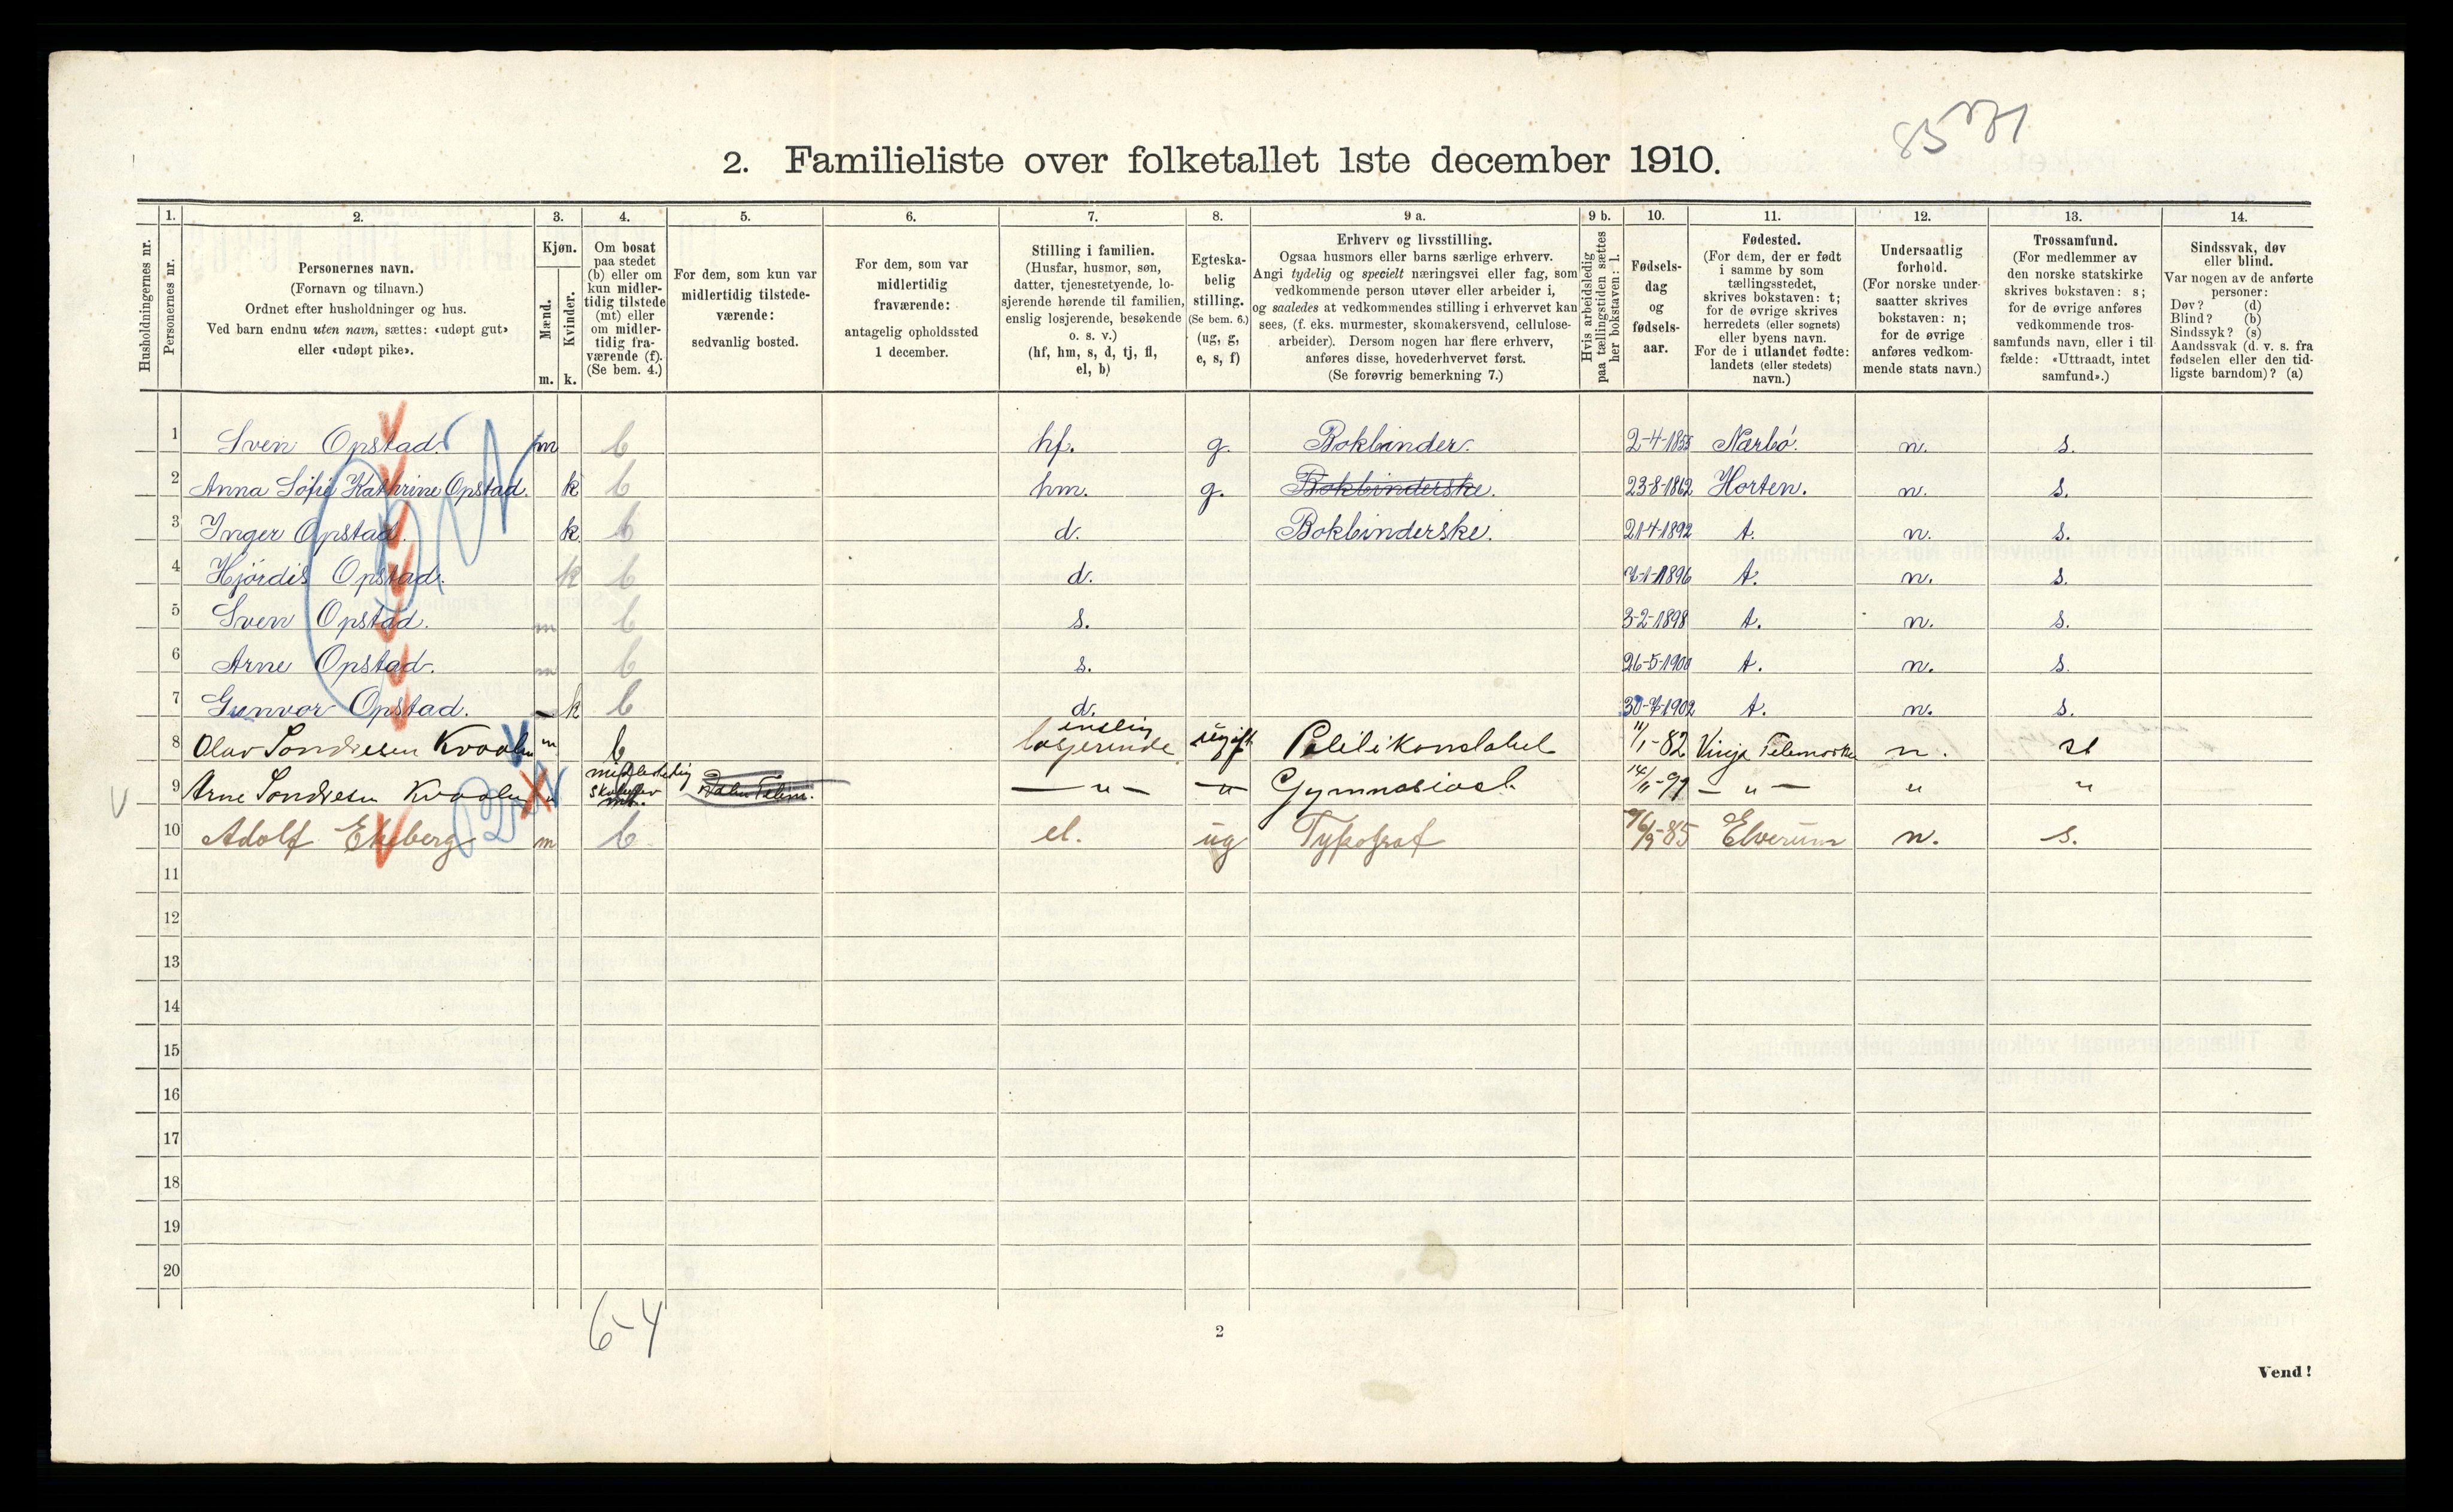 8571
2. Familieliste over folketallet 1ste december 1910.
Husholdningernes nr.
1. Personernes nr.
2. Personernes navn. (Fornavn og tilnavn.) Ordnet efter husholdninger og hus. Ved barn endnu uten navn, sættes: «udøpt gut» eller «udøpt pike».
3. Kjøn. Mænd. m. Kvinder. k.
4. Om bosat paa stedet (b) eller om kun midlertidig tilstede (mt) eller om midlertidig fraværende (f). (Se bem. 4.)
5. For dem, som kun var midlertidig tilstedeværende: sedvanlig bosted.
6. For dem, som var midlertidig fraværende: antagelig opholdssted 1 december.
7. Stilling i familien. (Husfar, husmor, søn, datter, tjenestetyende, losjerende hørende til familien, enslig losjerende, besøkende o. s. v.) (hf, hm, s, d, tj, fl, el, b)
8. Egteskabelig stilling. (Se bem. 6.) (ug, g, e, s, f)
9 a. Erhverv og livsstilling. Ogsaa husmors eller barns særlige erhverv. Angi tydelig og specielt næringsvei eller fag, som vedkommende person utøver eller arbeider i, og saaledes at vedkommendes stilling i erhvervet kan sees, (f. eks. murmester, skomakersvend, cellulosearbeider). Dersom nogen har flere erhverv, anføres disse, hovederhvervet først. (Se forøvrig bemerkning 7.)
9 b. Hvis arbeidsledig paa tællingstiden sættes her bokstaven: l.
10. Fødselsdag og fødselsaar.
11. Fødested. (For dem, der er født i samme by som tællingsstedet, skrives bokstaven: t; for de øvrige skrives herredets (eller sognets) eller byens navn. For de i utlandet fødte: landets (eller stedets) navn.)
12. Undersaatlig forhold. (For norske undersaatter skrives bokstaven: n; for de øvrige anføres vedkommende stats navn.)
13. Trossamfund. (For medlemmer av den norske statskirke skrives bokstaven: s; for de øvrige anføres vedkommende trossamfunds navn, eller i tilfælde: «Uttraadt, intet samfund».)
14. Sindssvak, døv eller blind. Var nogen av de anførte personer: Døv? (d) Blind? (b) Sindssyk? (s) Aandssvak (d. v. s. fra fødselen eller den tidligste barndom)? (a)
1 Sven Opstad. m b hf. g. Bokbinder. 2-4-1855 Nærbø. n. s.
2 Anna Sofie Kathrine Opstad. k b hm. g. Bokbinderske. 23-8-1862 Horten. n. s.
3 Inger Opstad. k b d. Bokbinderske. 21-4-1892 t. n. s.
4 Hjördis Opstad. k b d. 7-1-1896 t. n. s.
5 Sven Opstad. m b s. 3-2-1898 t. n. s.
6 Arne Opstad. m b s. 26-5-1900 t. n. s.
7 Gunvor Opstad. k b d. 30-7-1902 t. n. s.
8 Olav Sondresen Kvaalen m b enslig losjerende ugift Politikonstabel 11/1-82 Vinje Telemarken n. st
9 Arne Sondresen Kvaalen m midlertidig skoleelev mt. — " — — " Gymnasiast — " — " "
10 Adolf Ekeberg m b el. ug Typograf Elverum n. s.
11
12
13
14
15
16
17
18
19
20
6-4
2
Vend!